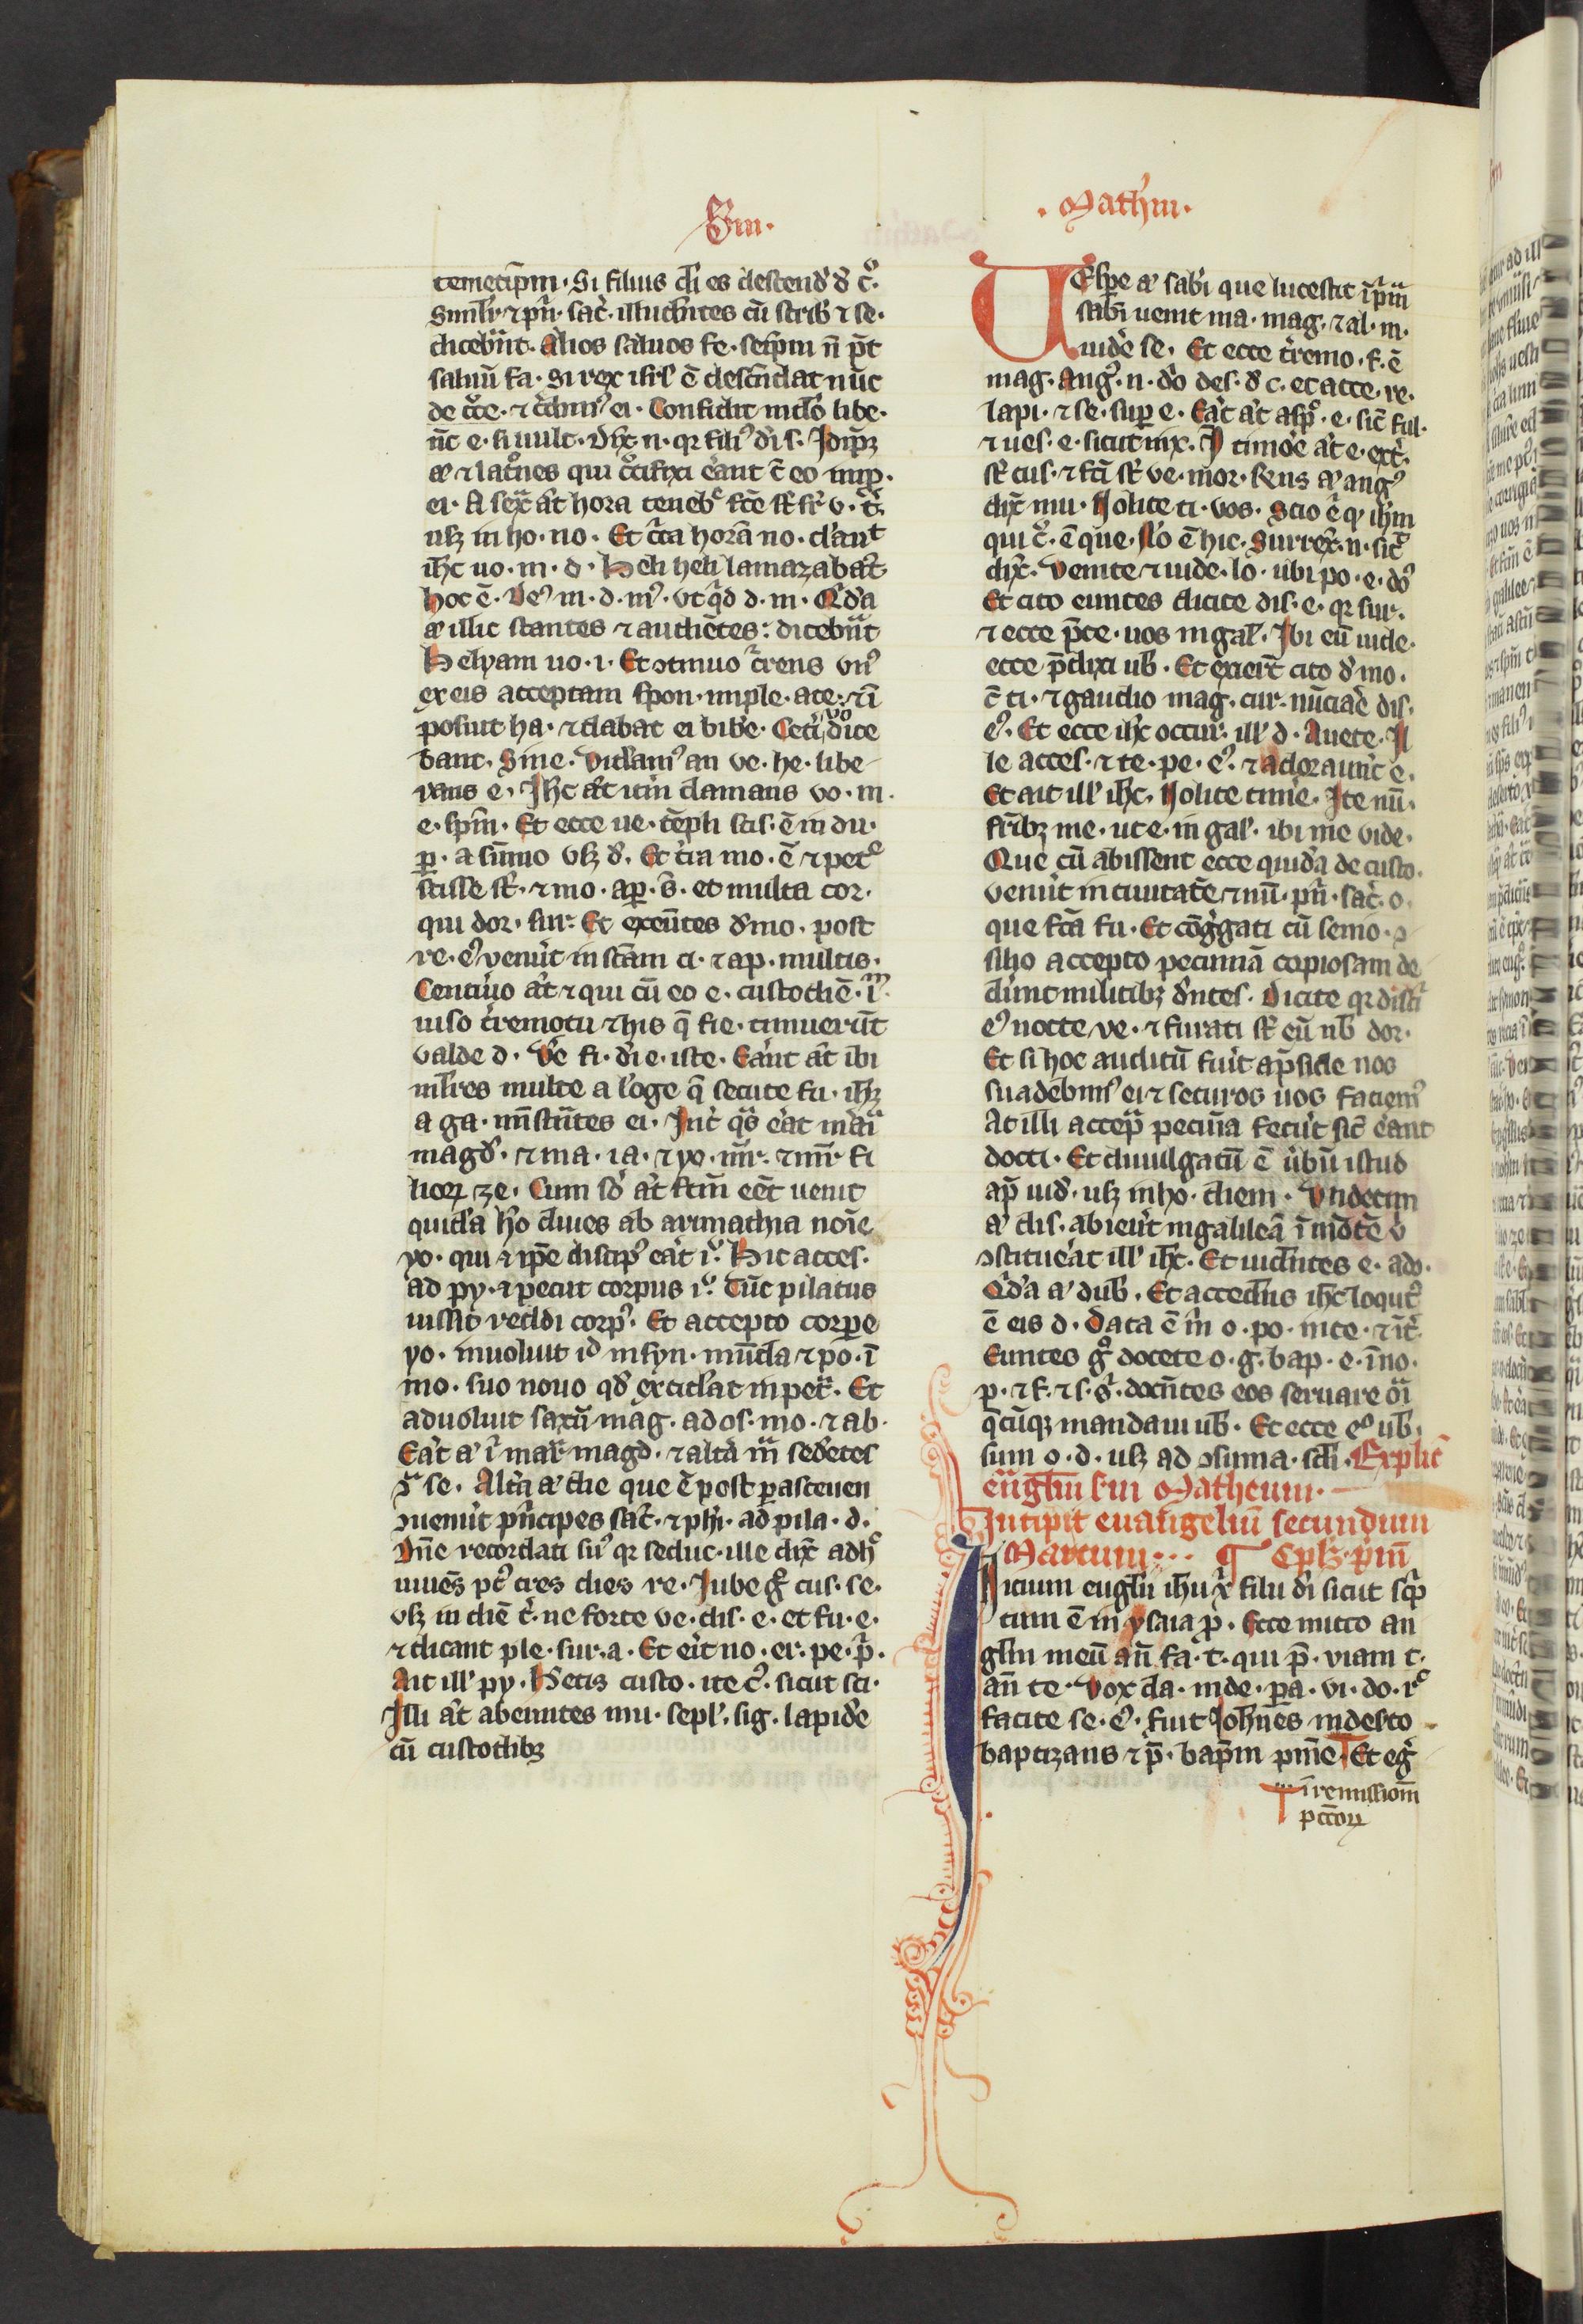 Sm̅.
temetip̅m. Si filius dī es descend' d' c̊.
Simil'r ⁊ pn̅. sac̄. illudn̅tes cū scrib' ⁊ se.
diceba̅t. Alios saluos fe. seip̅m n̅ pt̅
saluū fa. Si rex isr̅l ē descendat nūc
de c̊ce. ⁊ c̄dim᷒ ei. Confidit in dō libe.
nc̄ e. si vult. dix̄ n. qr fili᷒ di s. Idip̅ꝫ
aͤ ⁊ latōnes qui c̊cifixi erant c̄ eo imꝓ.
ei. A sexta at̄ hora teneb͛ fc̄e st̄ sr̄ v. t̄.
usꝫ in ho. no. Et c̄ca horā no. clāuit
ih̅c uo. m. d. Heli heli lamazabat̄.
hoc ē. De᷒ m. d. m᷒. ut qͥd d. m. Qͥda
aͤ illic stantes ⁊ audiētes: diceba̅t
Helyam uo. i. Et ↄtinuo c̄rens vn᷒
ex eis acceptam spon. imple. ace. ⁊ ī
posuit ha. ⁊ dabat ei bib̄e. Cet̄i v̊o dice
bant. Sine. Videam᷒ an ve. he. libe
rans e. Ih̅c at̄ itm̄ clamans vo. m.
e. spm̄. Et ecce ue. tēpli scis. ē in du.
ꝑ. a sūmo usꝫ d'. Et t̄ra mo. ē ⁊ pet͛
scisse st̄. ⁊ mo. aꝑ. s̄. et multa cor.
qui dor. sur. Et exeūtes d' mo. post
re. e᷒ venūt in sc̄am ci. ⁊ ap. multis.
Centuo at̄ ⁊ qui cū eo e. custodiē. īm.
uiso t̄remotu ⁊ his q̄ fie. timuerūt
valde d. Ve fi. d'i e. iste. Eānt at̄ ibi
ml̄res multe a lōge q̄ secute fu. ih̅ꝫ
a ga. mīstrātes ei. Int̄ q̄s eāt maͬia
magd'. ⁊ ma. ia. ⁊ yo. mr̄. ⁊ mr̄ fi
lioꝝ ze. Cum so̊ at̄ fc̄m eet̄ uenit
quida ho̊ diues ab arimathia noīe
yo. qui ⁊ ip̅e discip᷒ eāt i᷒. Hic acces.
ad py. ⁊ peciit corpus i᷒. Tūc pilatus
iussit reddi corp᷒. Et accepto corpe
yo. inuoluit id in syn. mūda ⁊ po. ī
mo. suo nouo qd̄ excid'at in pet̄. Et
aduoluit saxū mag. ad os. mo. ⁊ ab.
Eāt aͤ ī mar̄ magd. ⁊ alt̄a m̄ sed'etes
ↄͣ se. Alt̄a aͤ die que ē post parasceuen
ↄuenūt pn̄cipes sac̄. ⁊ phi. ad pila. d.
Dn̅e recordati su᷒ qr seduc. ille dix̄ adh᷒
uiuēs pt᷒ tres dies re. Iube g̊ cus. se.
usꝫ in diē t̄. ne forte ve. dis. e. et fu. e.
⁊ dicant ple. sur. a. Et eit̄ no. er. pe. p̄.
Ait ill' py. Hetis custo. ite c᷒. sicut sci.
Illi at̄ abeuntes mu. sepl'. sig. lapid'e
cū custodibꝫ
. Mathm̅.
Uespe aͤ sabi que lucescit ī pm̄
sabi uenit ma. mag. ⁊ al. m.
uide se. Et ecce t̄remo. f. ē
mag. Ang᷒. n. do̊ des. d' c. et acce. re.
lapi. ⁊ se. super e. Eāt at̄ asp᷒. e. sic̄ ful.
⁊ ues. e. sicut nix. P timōe at̄ e. ext̄.
st̄ cus. ⁊ fc̄i st̄ ve. mor. Rn̄s aͤ ang᷒
dix̄ mu. Nolite ti. vos. Scio ē qͥ ih̅m
qui c̊. ē que. No ē hic. Surrex̄. n. sic̄
dix̄. Venite ⁊ uide. lo. ubi po. e. do᷒
Et cito euntes dicite dis. e. qr sur.
⁊ ecce p̄ce. uos in gal'. Ibi eū uide.
ecce p̄dixi ub̄. Et exieīt cito d' mo.
c̄ ti. ⁊ gaudio mag. cur. nūciāe dis.
e᷒. Et ecce ih̅c occur. ill' d. Auete. Il
le acces. ⁊ te. pe. e᷒. ⁊ adoraunt e.
Et ait ill' ih̅c. Nolite time. Ite nū.
fr̄ibꝫ me. ut e. in gal'. ibi me vide.
Que cū abissent ecce quida de custo.
venūt in ciuitatē ⁊ nū. pn̄. sac̄. o.
que fc̄a fu. Et cōg̊gati cū senio. ↄ
silio accepto pecuniā copiosam de
d'unt militibꝫ d'ntes. Dicite qr disci
e᷒ nocte ve. ⁊ furati st̄ eū nb̄ dor.
Et si hoc auditū fuit ap̄side nos
suadebim᷒ ei ⁊ securos uos faciem᷒
At illi accepͣ pecuīa fecūt sic̄ eānt
docti. Et diuulgatū ē ub̄ū istud
ap̄ iud'. usꝫ in ho. diem. Vndecim
aͤ dis. abieūt in galileā ī mōte v
ↄstitueāt ill' ih̅c. Et uidn̄tes e. ado.
Qͥda aͤ dub̄. Et accedn̄s ih̅c loqut᷒
ē eis d. Data ē m̄ o. po. in ce. ⁊ it̄.
Euntes g̊ docete o. g. bap. e. ī no.
p. ⁊ f. ⁊ s. s̄. docn̄tes eos seruare oīa
q̄cūqꝫ mandaui ub̄. Et ecce e᷒ ub̄.
sum o. d. usꝫ ad ↄsuma. sc̄li. Explic̄
eūgl̅iū s̅m Matheum.
Incipit euangeliū secundum
Marcum... ¶ Cpl̅ꝫ. pm̄ū
Inicium eugl̅ii ih̅u xͥ filii di sicut scͥp
tum ē in ysaia ꝓ. Ecce mitto an
glm̄ meū an̄ fa. t. qui p̄. viam t.
an̄ te. Vox cla. in de. pa. vi. do. r᷒
facite se. e᷒. fuit Ioh̅nes in desto
baptizans ⁊ p̄. bapm̄ pnīe Et eg̊
ī remissiom̄
pct̄oꝝ